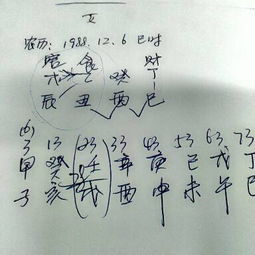 农历: 1988.12.6 巳时
官 食 财
戊 乙 癸 丁
辰 丑 酉 巳
(6)
3 13 23 33 43 53 63 73
甲 癸 壬 辛 庚 己 戊 丁
子 亥 戌 酉 申 未 午 巳